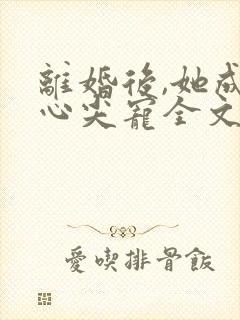 離婚後,她成
心尖寵全文
愛喫排骨飯